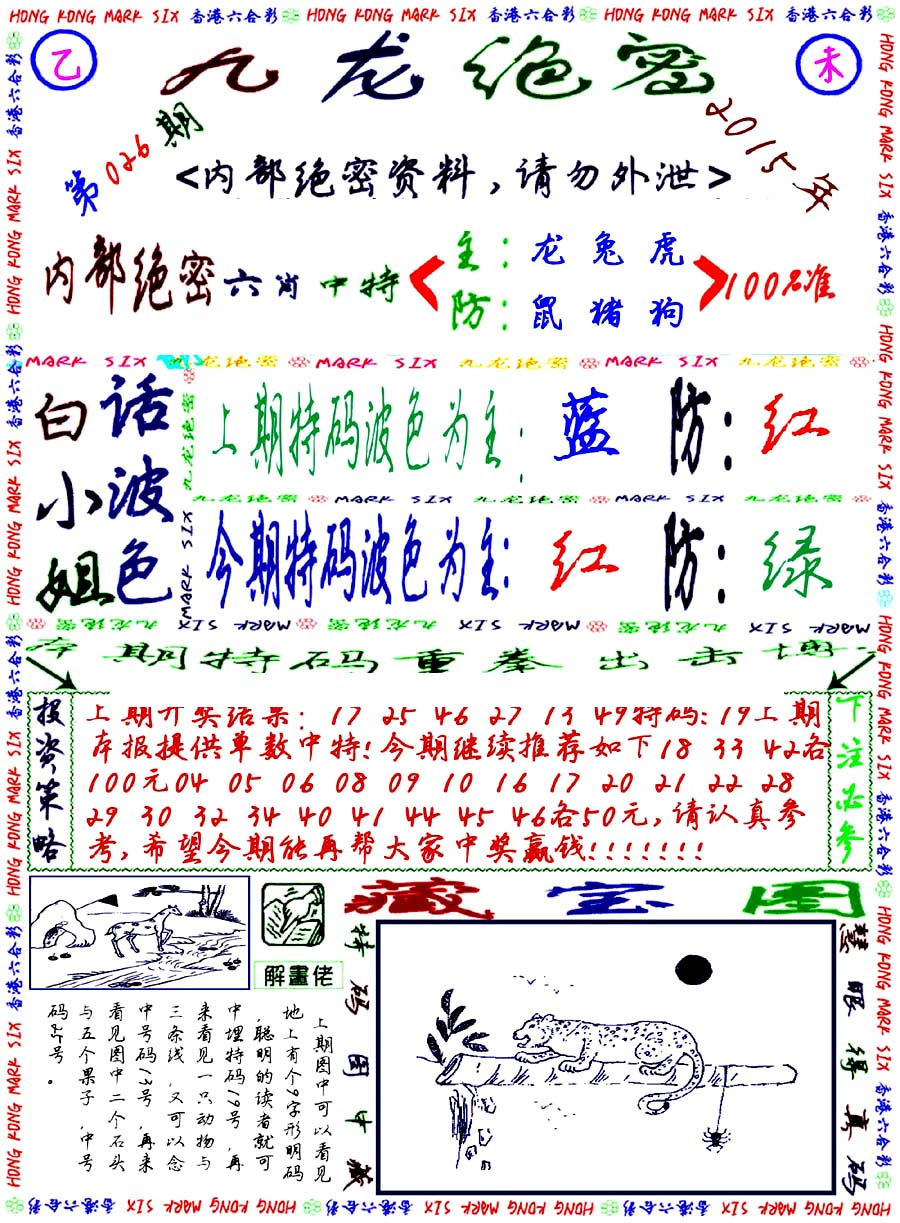 HONG KONG MARK SIX 香港六合彩 HONG KONG MARK SIX 香港六合彩 HONG KONG MARK SIX 香港六合彩
乙
九龙绝密
未
第026期
2015年
<内部绝密资料，请勿外泄>
内部绝密六肖中特
主：龙兔虎
防：鼠猪狗
100%准
MARK SIX 九龙绝密 MARK SIX 九龙绝密 MARK SIX 九龙绝密
白话小波姐色
上期特码波色为主：蓝 防：红
九龙绝密 MARK SIX 九龙绝密 MARK SIX 九龙绝密
今期特码波色为主：红 防：绿
九龙绝密 MARK SIX 九龙绝密 MARK SIX 九龙绝密 MARK SIX
本期特码重拳出击博
投资策略
上期开奖结果：17 25 46 27 13 49特码：19上期
本报提供单数中特！今期继续推荐如下18 33 42各
100元04 05 06 08 09 10 16 17 20 21 22 28
29 30 32 34 40 41 44 45 46各50元，请认真参
考，希望今期能再帮大家中奖赢钱！！！！！！！
下注必参
解畫佬
藏宝图
特码图中藏
慧眼得真码
上期图中可以看见
地上有个9字形明码
，聪明的读者就可
中埋特码19号，再
来看见一只动物与
三条线，又可以念
中号码13号，再来
看见图中二个石头
与五个果子，中号
HONG KONG MARK SIX 香港六合彩 HONG KONG MARK SIX 香港六合彩 HONG KONG MARK SIX 香港六合彩